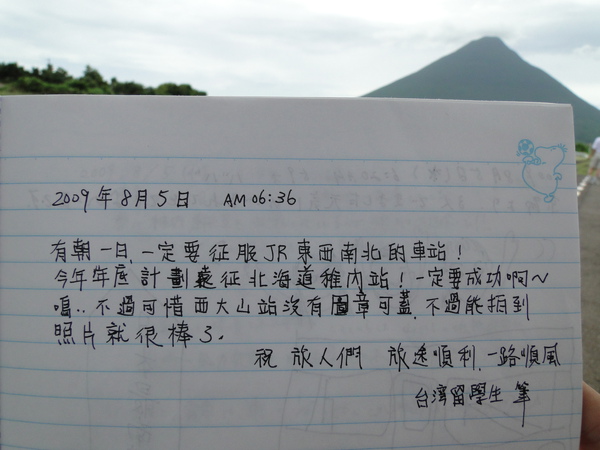 2009年8月5日 AM 06:36
有朝一日,一定要征服JR東西南北的車站!
今年年底計劃遠征北海道稚內站!一定要成功啊~
嗚..不過可惜西大山站沒有圖章可蓋,不過能拍到
照片就很棒了.
祝 旅人們 旅途順利,一路順風
台湾留學生 筆